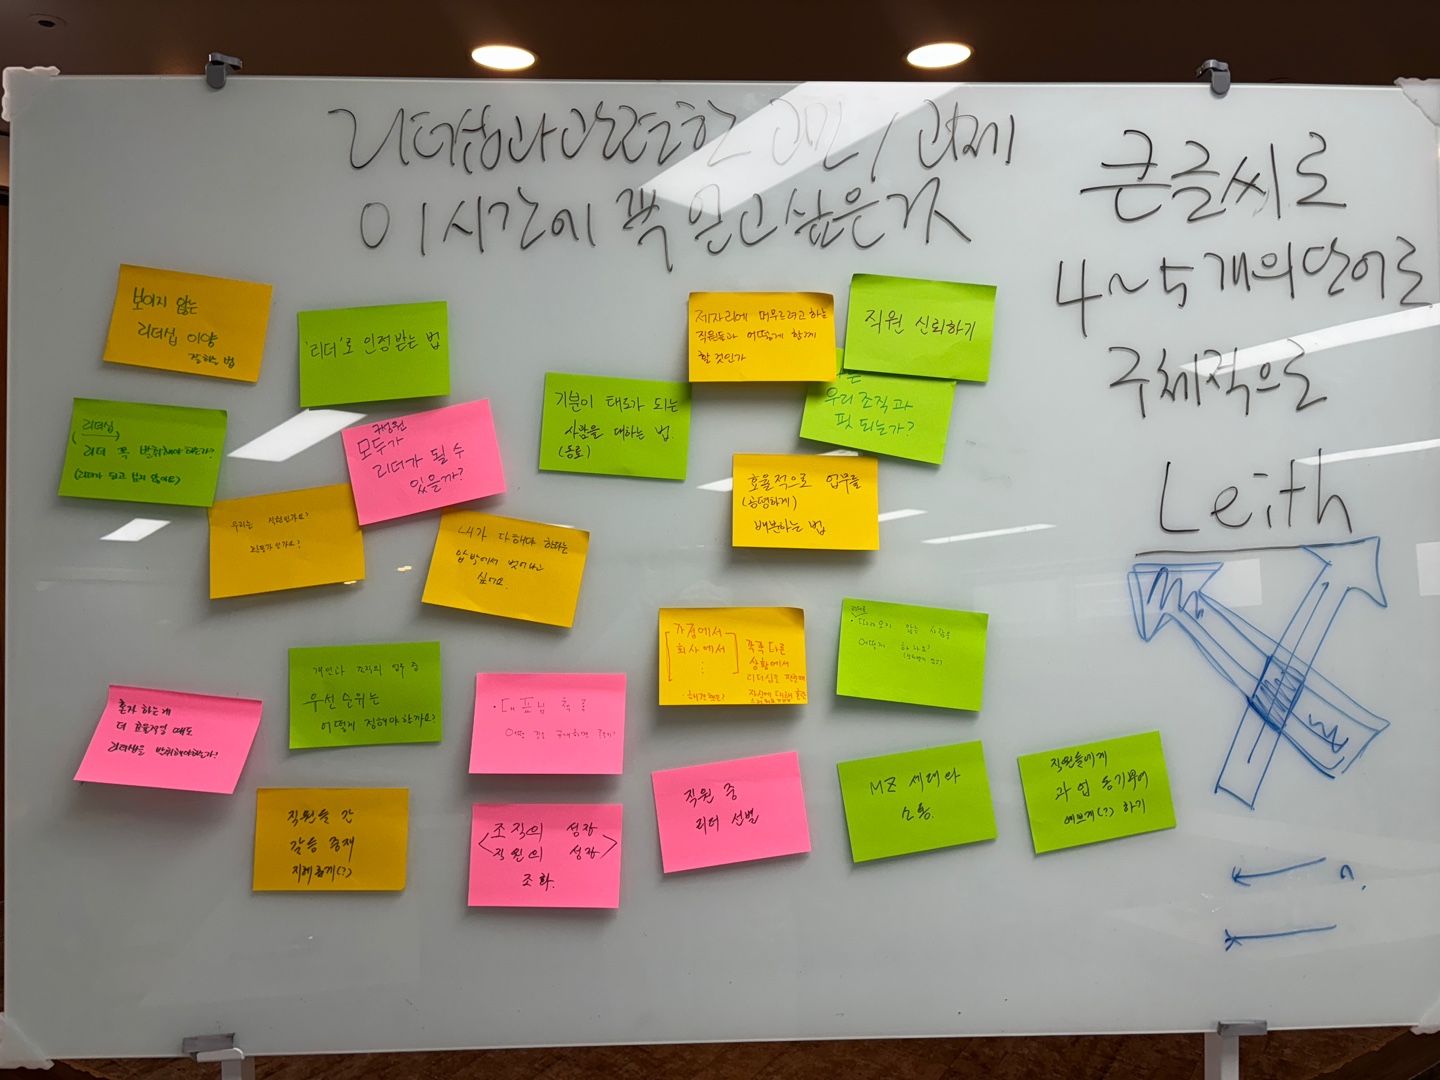 리더십과 관련한 고민 / 과제
이 시간에 꼭 얻고 싶은 것
큰 글씨로
4~5개의 단어로
구체적으로
Leith
보이지 않는
리더십 이양
잘하는 법
'리더'로 인정받는 법
제자리에 머무르려고 하는
직원들과 어떻게 함께
할 것인가
직원 신뢰하기
리더십
리더 꼭 발휘해야 하는가?
(리더가 되고 싶지 않아요)
구성원
모두가
리더가 될 수
있을까?
기분이 태도가 되는
사람을 대하는 법.
(동료)
우리 조직과
핏 되는가?
효율적으로 업무를
(공평하게)
배분하는 법
우리는 직원인가요?
내가 다해야 한다는
압박에서 벗어나고
싶어요.
가정에서
회사에서
각각 다른
상황에서
따라오지 않는 사람을
어떻게 하나요?
개인과 조직의 업무 중
우선순위는
어떻게 정해야 할까요?
혼자 하는게
더 효율적일 때도
리더십을 발휘해야하는가?
• 대표님 학목
직원들 간
갈등 중재
지혜롭게(?)
조직의 성장
직원의 성장
조화.
직원 중
리더 선별
MZ 세대와
소통.
직원들에게
과업 동기부여
예쁘게(?) 하기